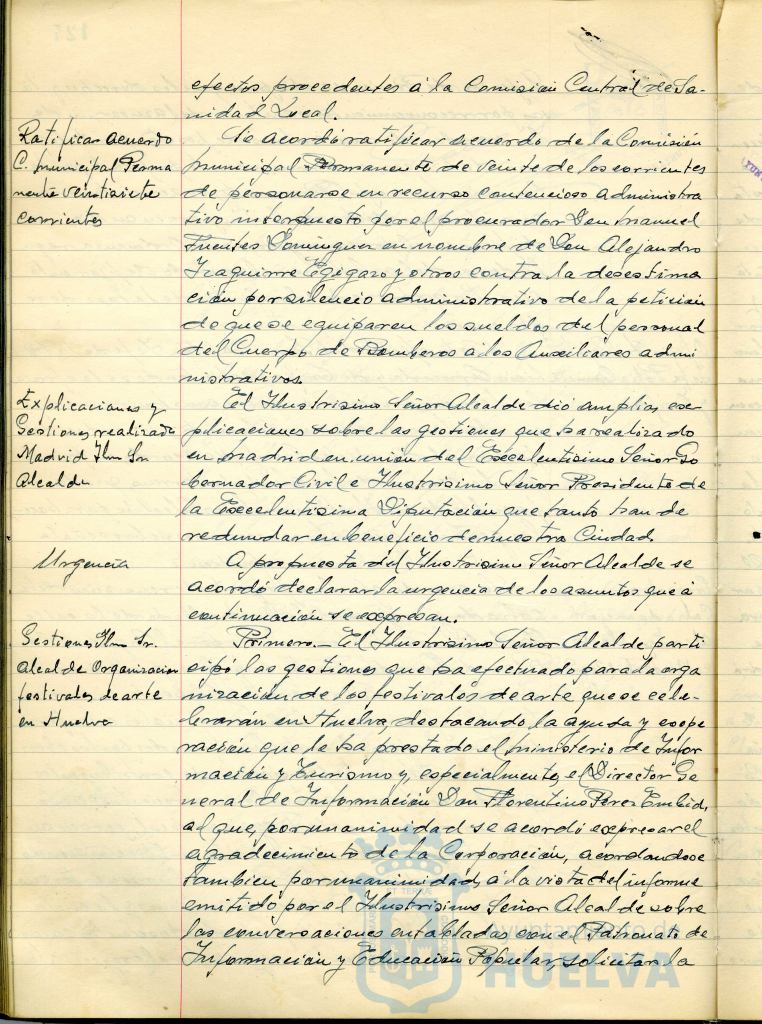 efectos procedentes á la Comision Central de Sa-
nidad Local.
Ratificar acuerdo
C. Municipal Perma
nente veintisiete
corrientes
Se acordó ratificar acuerdo de la Comisión
Municipal Permanente de veinte de los corrientes
de personarse en recurso contencioso administra
tivo interpuesto por el procurador Don Manuel
Fuentes Dominguez en nombre de Don Alejandro
Izaguirre y otros contra la desestima
ción por silencio administrativo de la petición
de que se equiparen los sueldos del personal
del Cuerpo de Bomberos a los Auxiliares admi
nistrativos.
Explicaciones y
Gestiones realizada
Madrid Ilmo Sr.
Alcalde
El Ilustrisimo Señor Alcalde dió amplias ex-
plicaciones sobre las gestiones que ha realizado
en Madrid en union del Excelentisimo Señor Go
bernador Civil e Ilustrisimo Señor Presidente de
la Excelentisima Diputación que tanto han de
redundar en beneficio de nuestra Ciudad.
Urgencia
A propuesta del Ilustrisimo Señor Alcalde se
acordó declarar la urgencia de los asuntos que á
continuación se expresan.
Gestiones Ilmo Sr.
Alcalde Organizacion
festivales de arte
en Huelva
Primero.- El Ilustrisimo Señor Alcalde parti
cipó las gestiones que ha efectuado para la orga
nización de los festivales de arte que se cele-
brarán en Huelva, destacando la ayuda y coope
ración que le ha prestado el Ministerio de Infor
mación y Turismo y, especialmente, el Director Ge
neral de Información Don Florentino Perez Embid,
al que, por unanimidad se acordó expresar el
agradecimiento de la Corporación, acordandose
tambien por unanimidad, á la vista del informe
emitido por el Ilustrisimo Señor Alcalde sobre
las conversaciones entabladas con el Patronato de
Información y Educación Popular, solicitar la
HUELVA